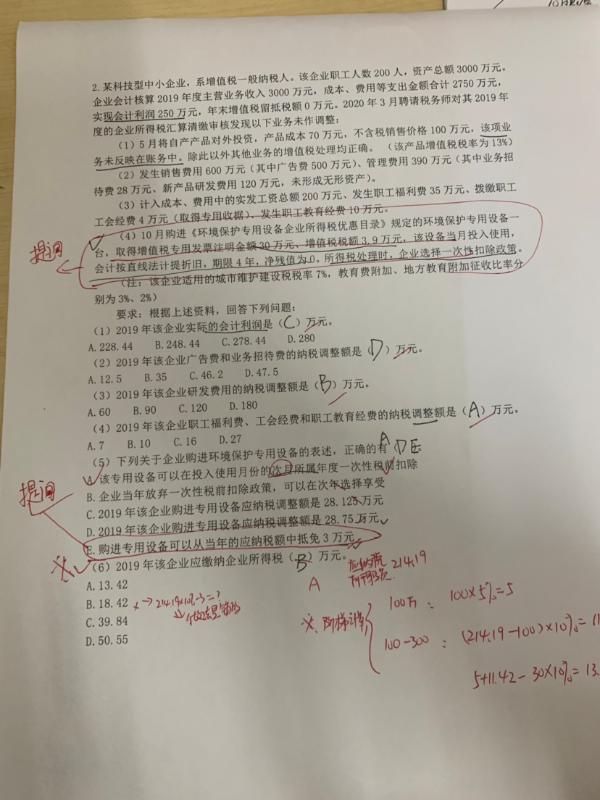 2.某科技型中小企业，系增值税一般纳税人。该企业职工人数200人，资产总额3000万元。
企业会计核算2019年度主营业务收入3000万元，成本、费用等支出金额合计2750万元，
实现会计利润250万元，年末增值税留抵税额0万元。2020年3月聘请税务师对其2019年
度的企业所得税汇算清缴审核发现以下业务未作调整：
（1）5月将自产产品对外投资，产品成本70万元，不含税销售价格100万元，该项业
务未反映在账务中。除此以外其他业务的增值税处理均正确。（该产品增值税税率为13%）
（2）发生销售费用600万元（其中广告费500万元）、管理费用390万元（其中业务招
待费28万元、新产品研发费用120万元，未形成无形资产）。
（3）计入成本、费用中的实发工资总额200万元、发生职工福利费35万元、拨缴职工
工会经费4万元（取得专用收据）、发生职工教育经费10万元。
（4）10月购进《环境保护专用设备企业所得税优惠目录》规定的环境保护专用设备一
提问
台，取得增值税专用发票注明金额30万元、增值税税额3.9万元，该设备当月投入使用，
会计按直线法计提折旧，期限4年，净残值为0。所得税处理时，企业选择一次性扣除政策。
（注：该企业适用的城市维护建设税税率7%，教育费附加、地方教育附加征收比率分
别为3%、2%）
要求：根据上述资料，回答下列问题：
（1）2019年该企业实际的会计利润是（C）万元。
A.228.44 B.248.44 C.278.44 D.280
（2）2019年该企业广告费和业务招待费的纳税调整额是（D）万元。
A.12.5 B.35 C.46.2 D.47.5
（3）2019年该企业研发费用的纳税调整额是（B）万元。
A.60 B.90 C.120 D.180
（4）2019年该企业职工福利费、工会经费和职工教育经费的纳税调整额是（A）万元。
A.7 B.10 C.16 D.27
（5）下列关于企业购进环境保护专用设备的表述，正确的有（ADE
A.该专用设备可以在投入使用月份的次月所属年度一次性税前扣除
B.企业当年放弃一次性税前扣除政策，可以在次年选择享受
提问
C.2019年该企业购进专用设备应纳税调整额是28.125万元
D.2019年该企业购进专用设备应纳税调整额是28.75万元
E.购进专用设备可以从当年的应纳税额中抵免3万元
（6）2019年该企业应缴纳企业所得税（B）万元。
A
214.19
A.13.42
B.18.42
C.39.84
D.50.55
100万： 100×5%=5
100-300： (214.19-100)×10%=11
5+11.42-30×10%=13.